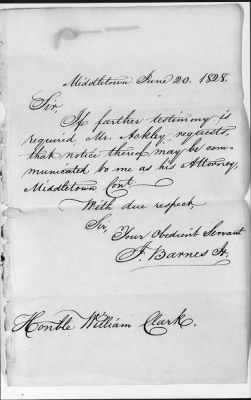 Middletown June 20. 1828.
Sir
If farther testimony is
required, Mr. Ackley requests,
that notice thereof may be com-
municated to me as his Attorney,
Middletown Cont
With due respect,
Sir,
Your Obedient Servant
J. Barnes Jr.
Honble William Clark.